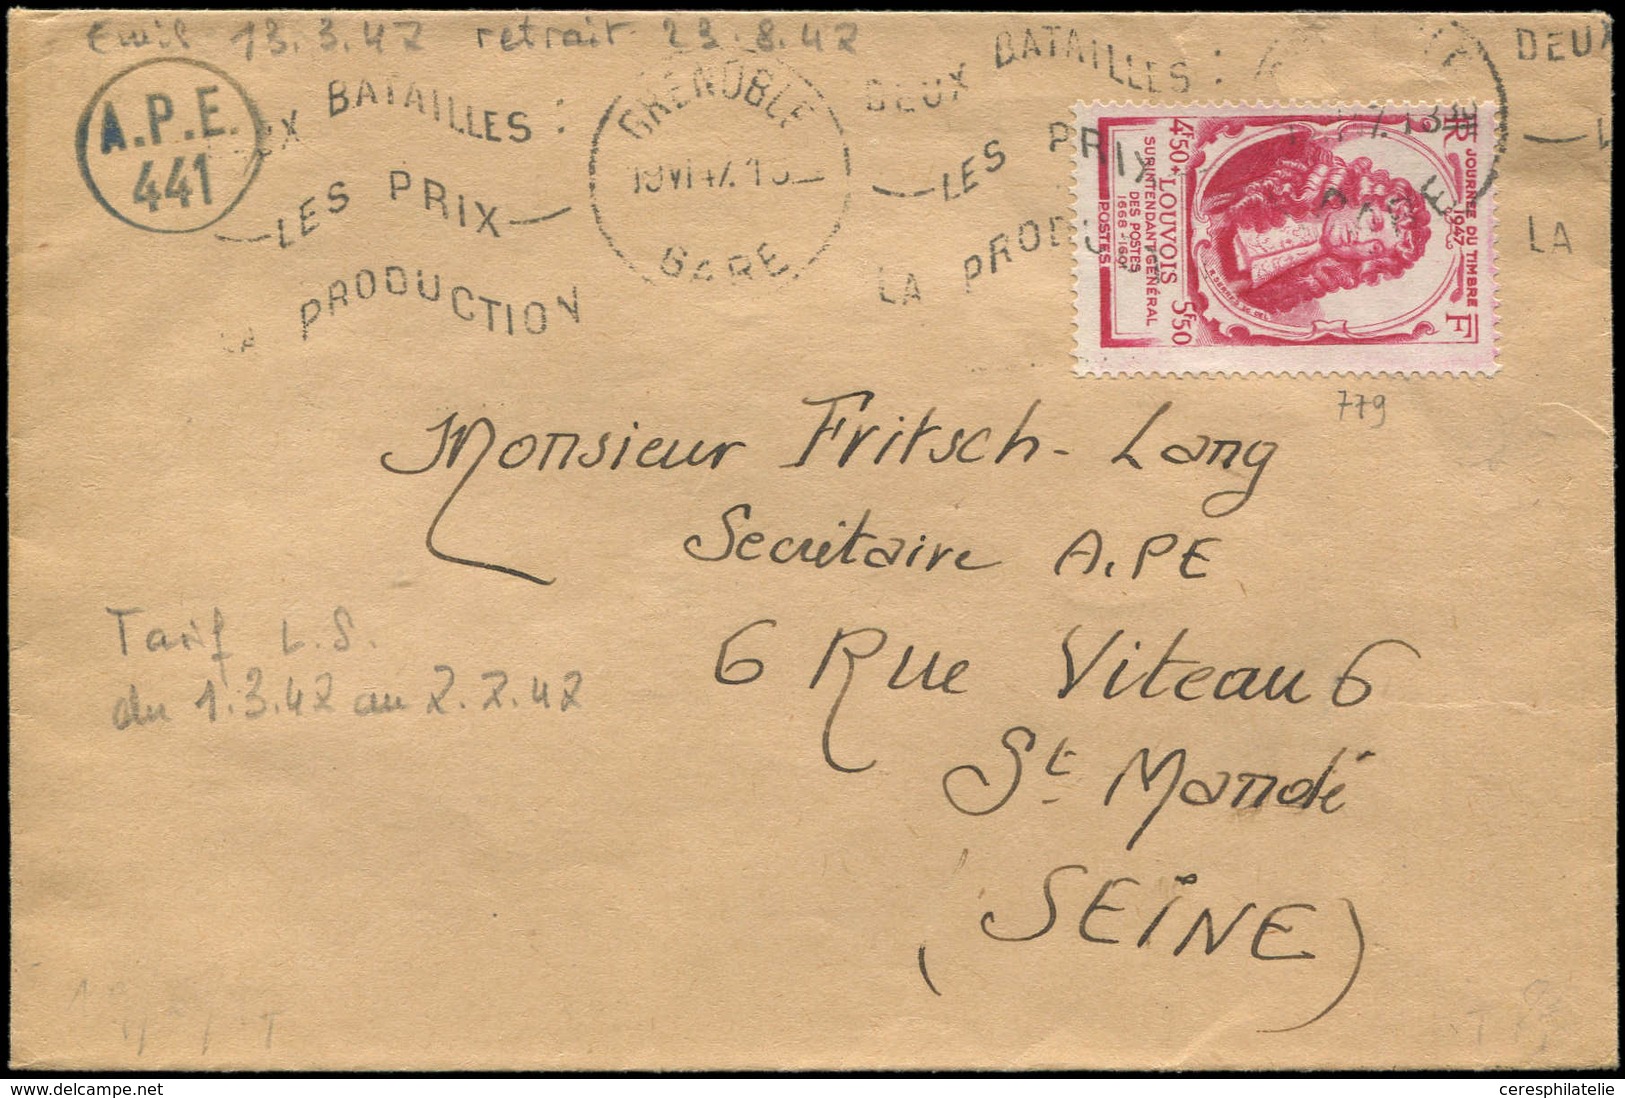 Emis 13.3.47 retrait 23.8.47
A.P.E.
441
DEUX BATAILLES:
LES PRIX
LA PRODUCTION
GRENOBLE
19 VI 47
GARE
DEUX BATAILLES:
LES PRIX
LA PRODU
DEUX
LA
JOURNÉE DU TIMBRE
1947
RF
4F50+ LOUVOIS 5F50
SURINTENDANT GÉNÉRAL
DES POSTES
1668-1691
POSTES
779
Monsieur Fritsch-Lang
Secrétaire A.PE
6 Rue Viteau 6
St Mandé
(SEINE)
Tarif L.S.
du 1.3.47 au 2.7.47
ceresphilatelie